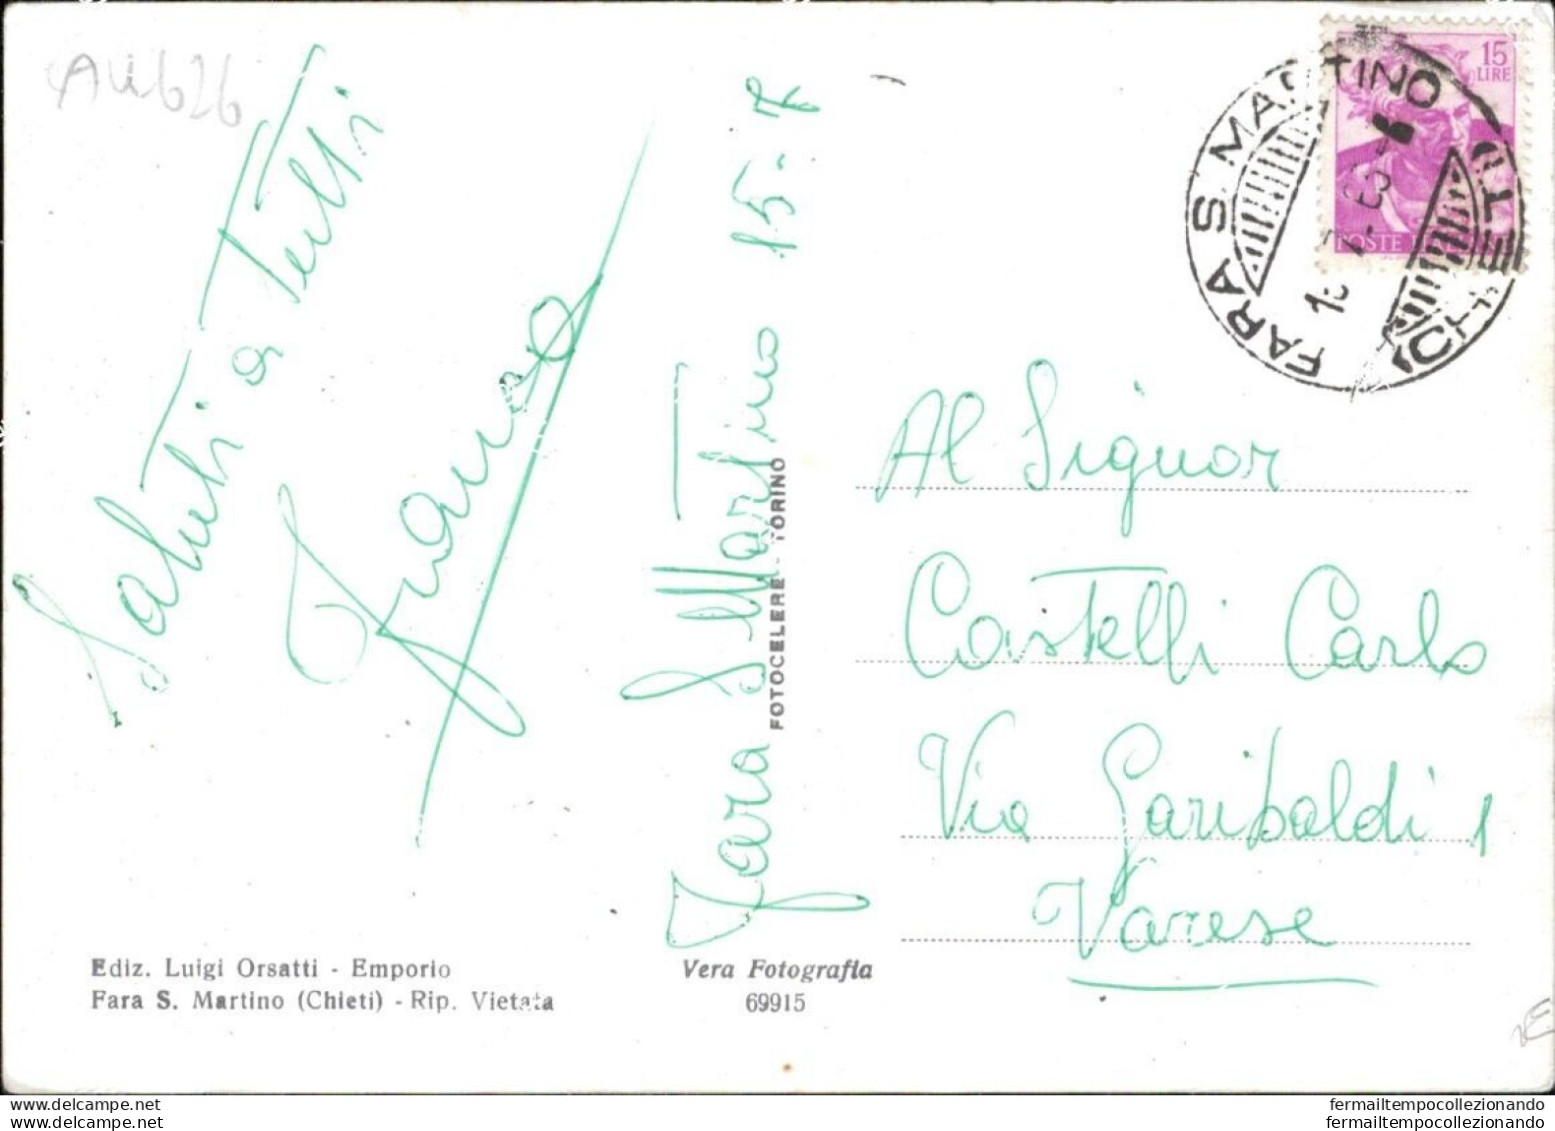 AU626
Saluti a tutti
Franco
Fara S. Martino 15-7
FOTOCELERE - TORINO
15
LIRE
POSTE
FARA S. MARTINO
(CHIETI)
Al Signor
Castelli Carlo
Via Garibaldi 1
Varese
Ediz. Luigi Orsatti - Emporio
Fara S. Martino (Chieti) - Rip. Vietata
Vera Fotografia
69915
www.delcampe.net
www.delcampe.net
fermailtempocollezionando
fermailtempocollezionando